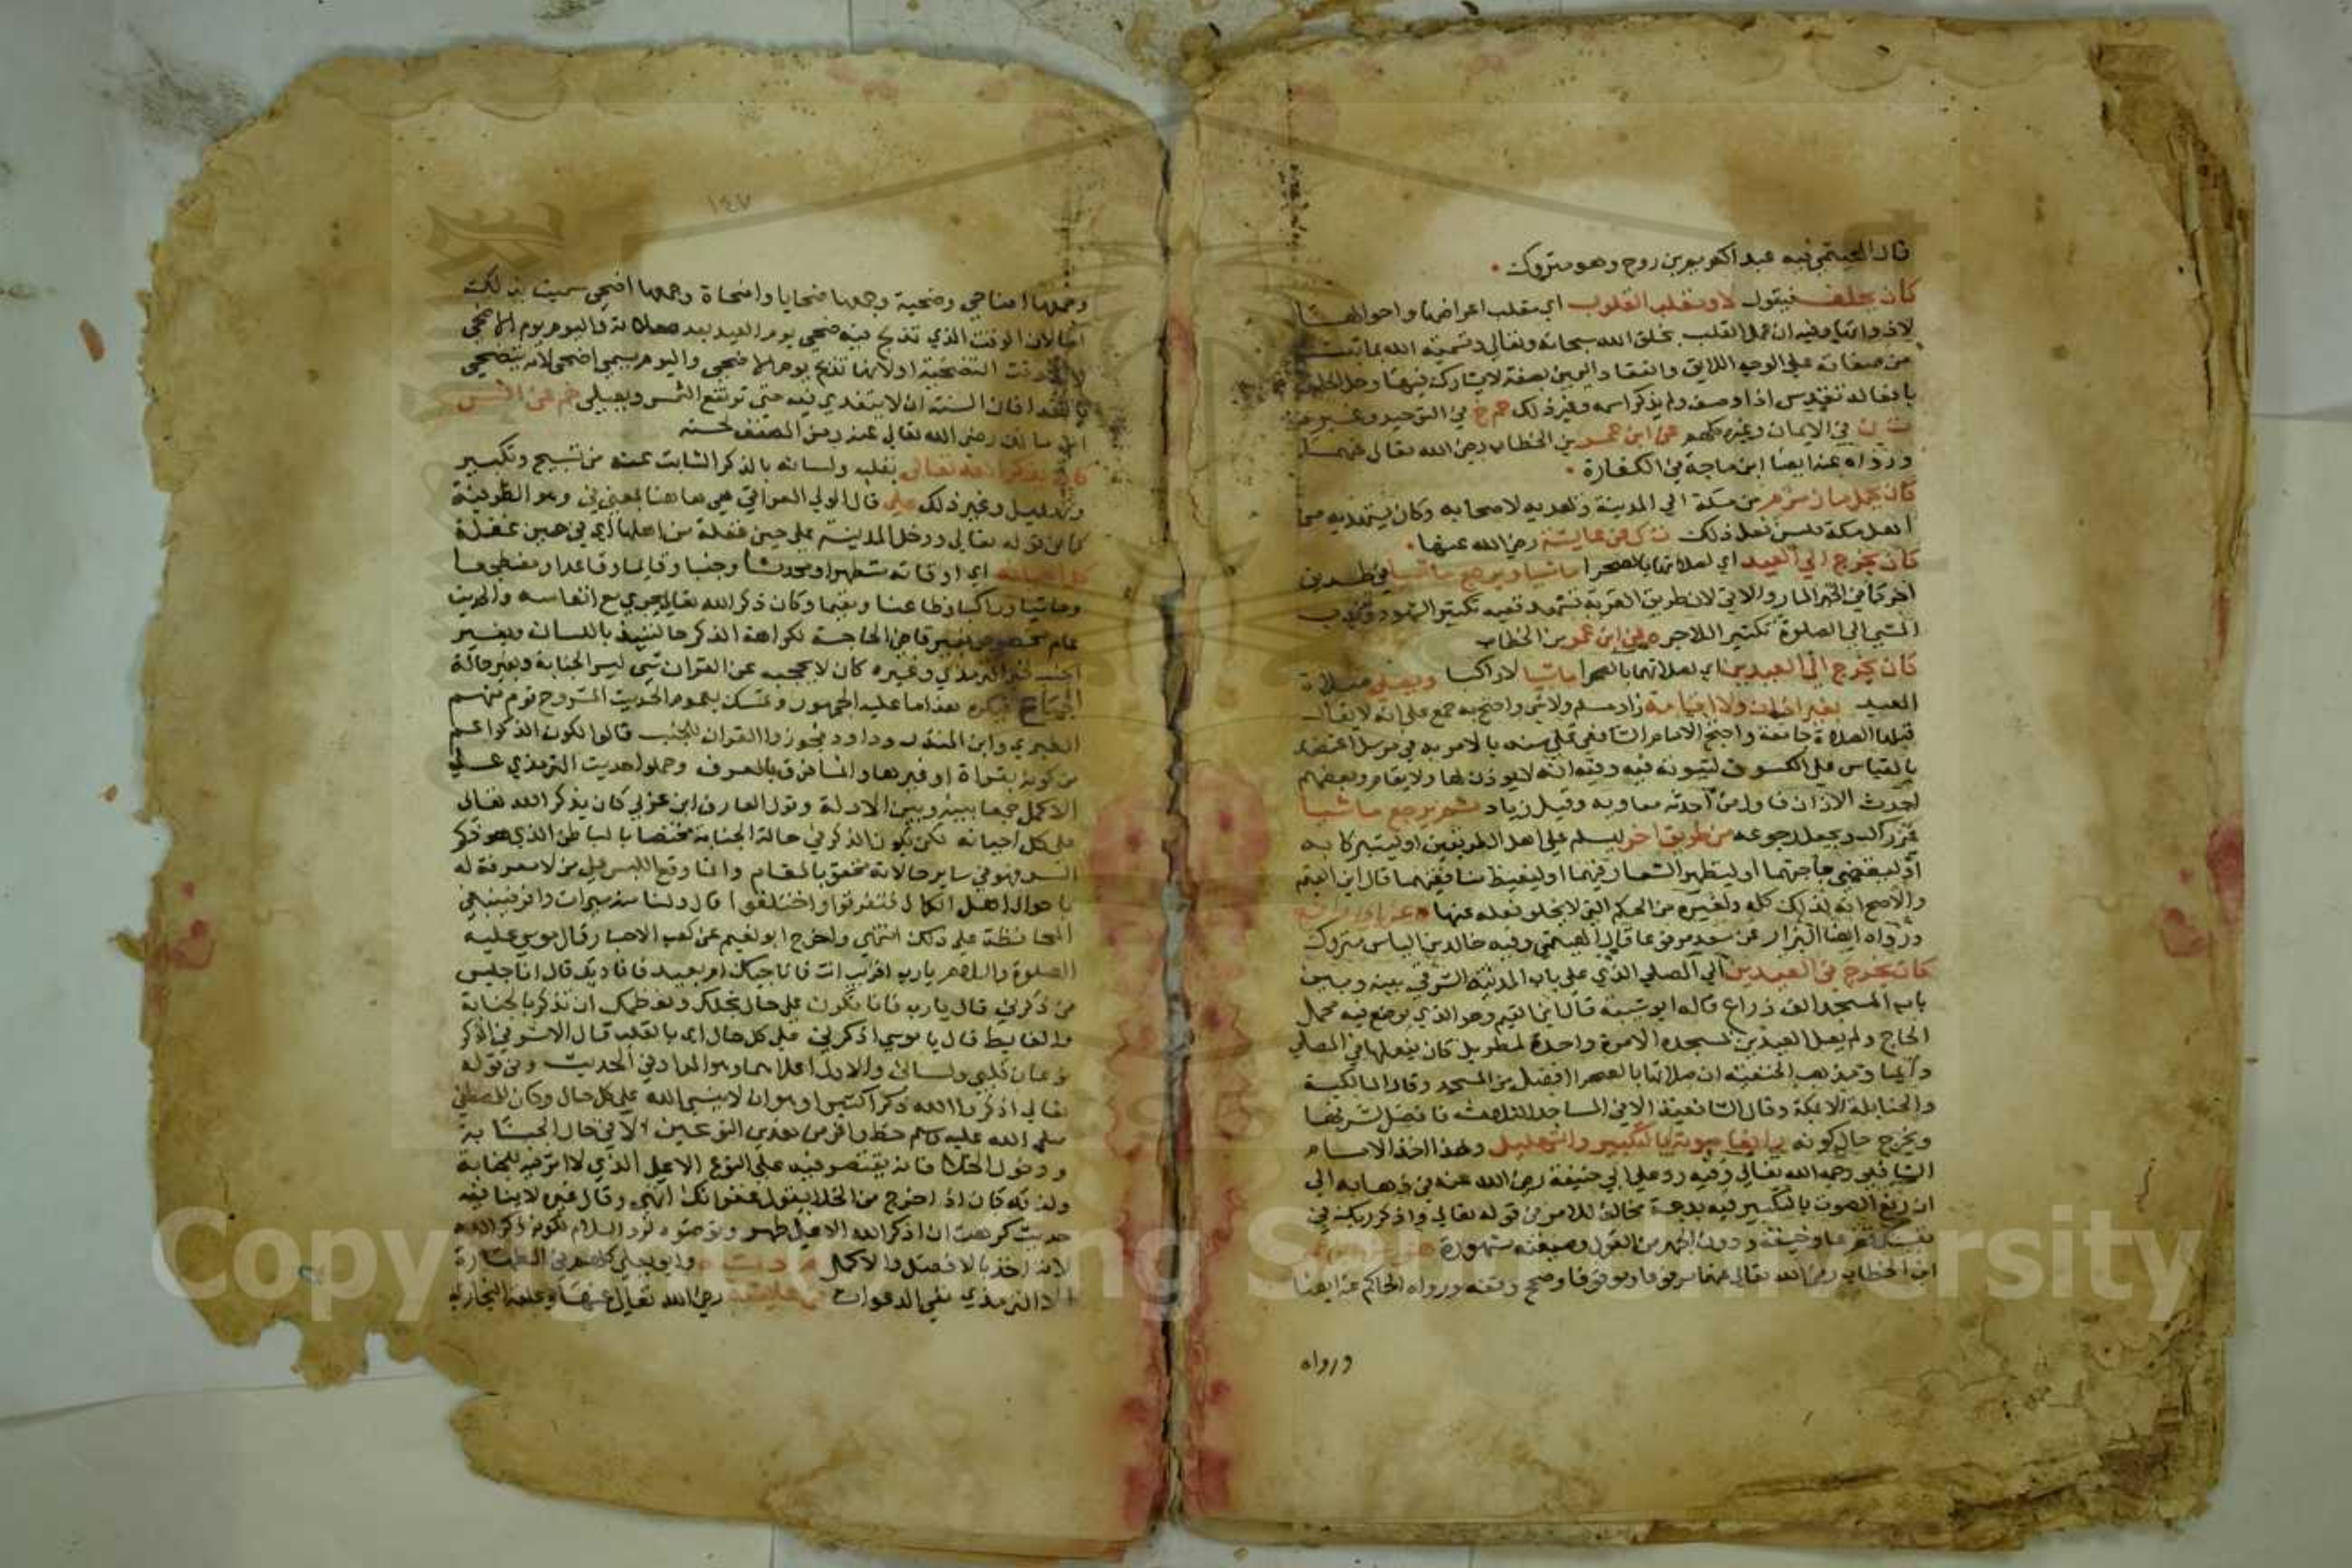 قال الهيثمي فيه عبد الكريم بن روح وهو متروك
كان يحلف فيقول لا ومقلب القلوب اي مقلب اعراضها واحوالها
لا ذواتها وفيه ان عمل القلب بخلق الله سبحانه وتعالى وتسمية الله بما ثبت
من صفاته على الوجه اللايق وانعقاد اليمين بصفة لا يشارك فيها
وغير ذلك حم خ في التوحيد وغيره
ت ن في الايمان وغيره كلهم عن ابن عمر بن الخطاب رضي الله تعالى عنهما
ورواه عنه ايضا ابن ماجة في الكفارة
كان يحمل ماء زمزم من مكة الى المدينة ويهديه لاصحابه وكان يستهديه من
اهل مكة فيسن فعل ذلك ت ك عن عايشة رضي الله عنها
كان يخرج الى العيد اي لصلاتها بالصحرا ماشيا ويرجع ماشيا في طريق
اخر كما في الخبر المار والاتي لان طريق القربة تشهد ففيه تكثير الشهود وندب
المشي الى الصلوة تكثير اللاجر ه عن ابن عمر بن الخطاب
كان يخرج الى العيدين اي لصلاتهما بالصحرا ماشيا لا راكبا ويصلي صلاة
العيد بغير اذان ولا اقامة زاد مسلم ولا شي واحتج به جمع على انه لا يقال
قبلها الصلاة جامعة واحتج الامام الشافعي على سنه بالامر به في مرسل اعتضد
بالقياس على الكسوف لثبوته فيه وفيه انه لا يوذن لها ولا يقام وبعضهم
احدث الاذان فاول من احدثه معاويه وقيل زياد ثم يرجع ماشيا
غير راكب ويجعل رجوعه من طريق اخر ليسلم على اهل الطريقين او ليتبركا به
او ليقضي حاجتهما او ليظهر الشعار فيهما او ليغيظ منافقهما قال ابن القيم
والاصح انه لذلك كله ولغيره من الحكم التي لا يخلو فعله عنها ه عن ابي رافع
ورواه ايضا البزار عن سعد مرفوعا قال الهيثمي وفيه خالد بن الياس متروك
كان يخرج في العيدين الى المصلى الذي على باب المدينة الشرقي بينه وبين
باب المسجد الف ذراع قاله ابو شيبة قال ابن القيم وهو الذي يوضع فيه محمل
الحاج ولم يصل العيد بمسجده الا مرة واحدة لمطر بل كان يفعلها في المصلى
دايما ومذهب الحنفية ان صلاتها بالصحرا افضل من المسجد وقال المالكية
والحنابلة الا بمكة وقال الشافعية الا في المساجد الثلاثة فافضل لشرفها
ويخرج حال كونه رافعا صوته بالتكبير والتهليل وبهذا اخذ الامام
الشافعي رحمه الله تعالى وفيه رد على ابي حنيفة رضي الله عنه في ذهابه الى
ان رفع الصوت بالتكبير فيه بدعة مخالف للامر من قوله تعالى واذكر ربك في
نفسك تضرعا وخيفة ودون الجهر من القول وصيغته مشهورة
ابن الخطاب رضي الله تعالى عنهما مرفوعا وموقوفا وصحح وقفه ورواه الحاكم عنه ايضا
ورواه
١٤٧
وجمعها اضاحي وضحية وجمعها ضحايا واضحاة وجمعها اضحى سميت بذلك
الوقت الذي تذبح فيه ضحى يوم العيد بعد صلاته واليوم يوم الاضحى
وقت التضحية او لانها تذبح يوم الاضحى واليوم يسمى اضحى لانه يتضحى
بالغدا فان السنة ان لا يتغدى فيه حتى ترتفع الشمس ويصلي حم عن انس
ابن مالك رضي الله تعالى عنه رمز المصنف لحسنه
كان يذكر الله تعالى بقلبه ولسانه بالذكر الثابت عنه من تسبيح وتكبير
وتهليل وغير ذلك على قال الولي العراقي هي هاهنا بمعنى في وهو الظرفية
كما في قوله تعالى ودخل المدينة على حين غفلة من اهلها اي في حين غفلة
كل احيانه اي اوقاته متطهرا ومحدثا وجنبا وقايما وقاعدا ومضطجعا
وماشيا وراكبا وظاعنا ومقيما وكان ذكر الله تعالى يجري مع انفاسه والحديث
عام مخصوص بغير قاضي الحاجة لكراهة الذكر حالتيذ باللسان وبغير
الجنب لخبر الترمذي وغيره كان لا يحجبه عن القران شي ليس الجنابة وبغير حالة
الجماع فيكره هذا ما عليه الجمهور وتمسك بعموم الحديث المشروح قوم منهم
الطبري وابن المنذر وداود فجوزوا القران للجنب قالوا لكون الذكر اعم
من كونه بقراة او غيرها وانما فرق بالعرف وحملوا حديث الترمذي على
الاكمل جمعا بينه وبين الادلة وقول العارف ابن عربي كان يذكر الله تعالى
على كل احيانه لكن يكون الذكر في حالة الجنابة مختصا بالباطن الذي هو ذكر
السر فهو في ساير حالاته محقق بالمقام وانما وقع اللبس على من لا معرفة له
باحوال اهل الكمال فتفرقوا واختلفوا قال ولنا منه ميراث وافر فينبغي
المحافظة على ذلك انتهى واخرج ابو نعيم عن كعب الاحبار قال موسى عليه
الصلوة والسلام يارب اقريب انت فاناجيك ام بعيد فاناديك قال انا جليس
من ذكرني قال يارب فانا نكون على حال نجلك ونعظمك ان نذكر بالجنابة
والغايط قال يا موسى اذكرني على كل حال اي بالقلب قال الاشرفي الذكر
نوعان قلبي ولساني والاول اعلاهما وهو المراد في الحديث وفي قوله
تعالى اذكروا الله ذكرا كثيرا وهو ان لا ينسى الله على كل حال وكان للمصطفى
صلى الله عليه وسلم حظ وافر من هذين النوعين الا في حال الجنابة
ودخول الخلا فانه يقتصر فيه على النوع الاعلى الذي لا اثر فيه للجنابة
ولذلك كان اذا خرج من الخلا يقول غفرانك انتهى وقال غيره لا ينافيه
حديث كرهت ان اذكر الله الا على طهر وتوضوه لرد السلام لكونه ذكر الله
لانه اخذ بالافضل والاكمل وابو يعلى كلهم في الطهارة
الا الترمذي ففي الدعوات عن عايشة رضي الله تعالى عنها وعلقه البخاري
Copyright © King Saud University